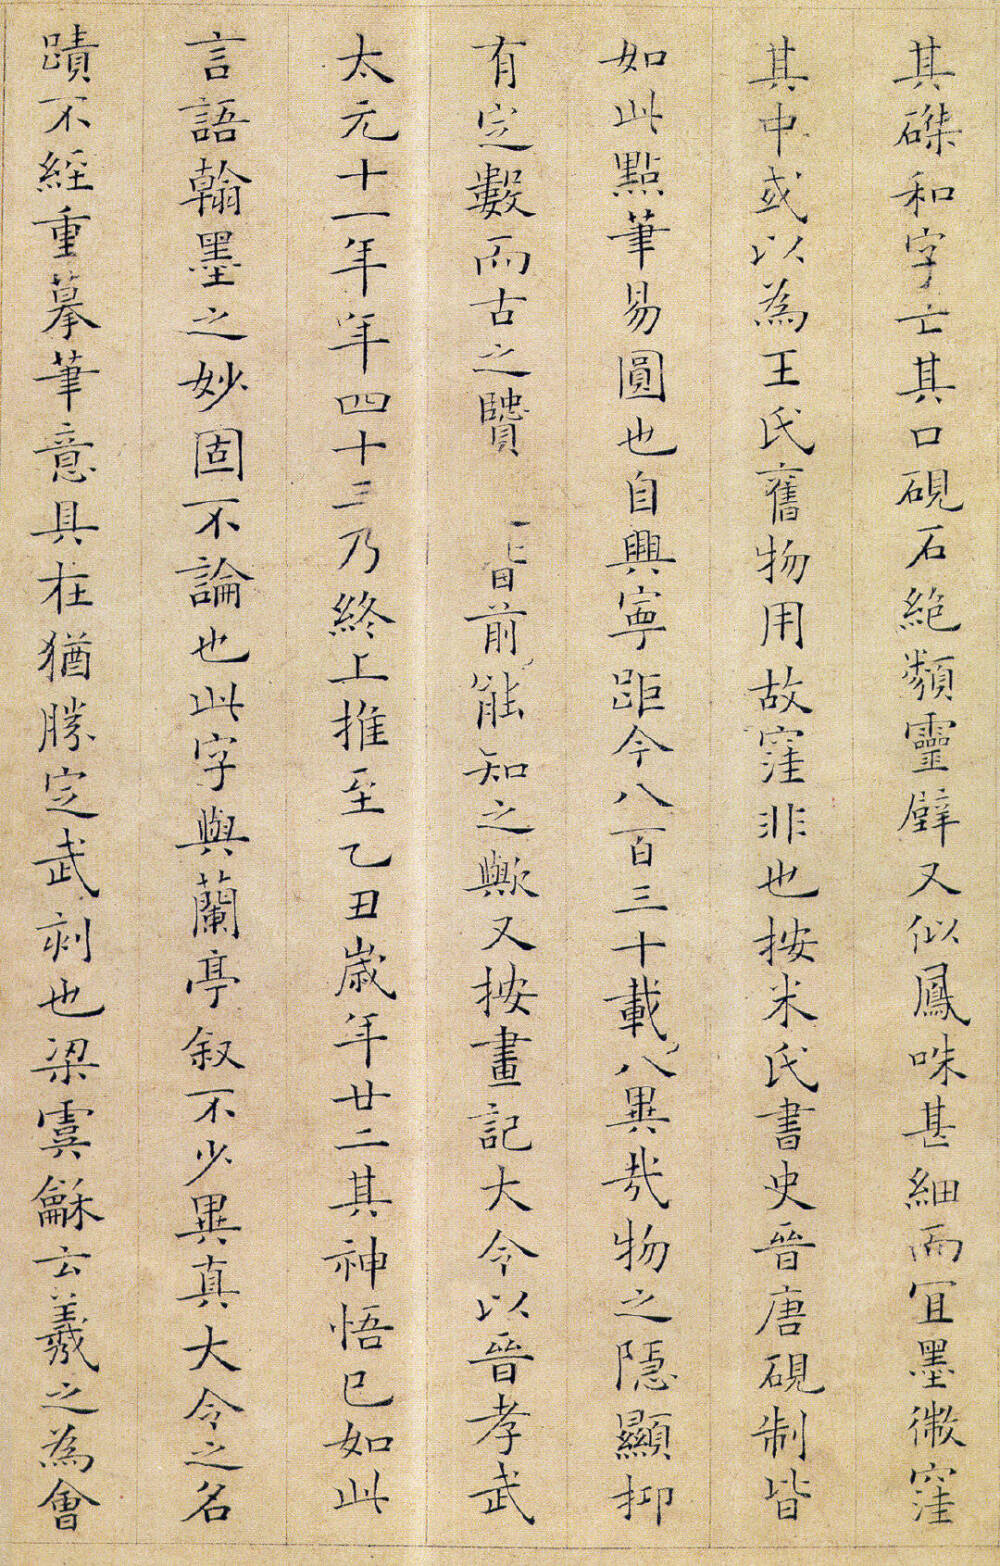 其磔和字亡其口硯石絶類靈璧又似鳳咮甚細而宜墨微窪
其中或以為王氏舊物用故窪非也按米氏書史晉唐硯制皆
如此點筆易圓也自興寧距今八百三十載八異哉物之隱顯抑
有定數而古之賢 前能知之歟又按畫記大令以晉孝武
太元十一年年四十三乃終上推至乙丑歲年廿二其神悟已如此
言語翰墨之妙固不論也此字與蘭亭叙不少異真大令之名
蹟不經重摹筆意具在猶勝定武刻也梁虞龢云羲之為會